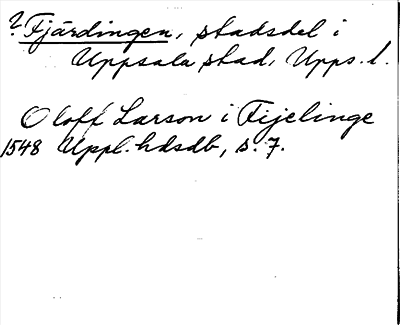 ? Fjärdingen, stadsdel i
Uppsala stad, Upps. l.
Oloff Larson i Fijelinge
1548 Uppl. hdsdb, s. 7.